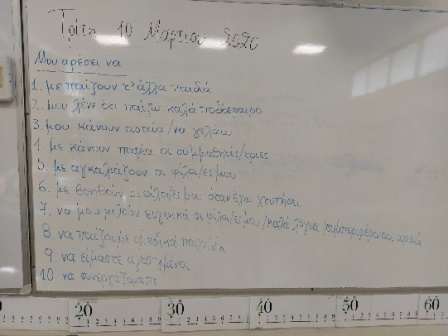 Τρίτη 10 Μαρτίου 2020
Μου αρέσει να
1. με παίζουν τ' άλλα παιδιά
2. μου λένε ότι παίζω καλά ποδόσφαιρο
3. μου κάνουν αστεία/να γελάω
4. με κάνουν παρέα οι συμμαθητές/τριες
5. με αγκαλιάζουν οι φίλοι/ες μου
6. με βοηθούν οι φίλοι/ες μου όταν έχω χτυπήσει
7. να μου μιλούν ευγενικά οι φίλοι/ες μου/καλά λόγια
8 να παίζουμε
9 να είμαστε αγαπημένοι
10 να συνεργαζόμαστε
20 30 40 50 60